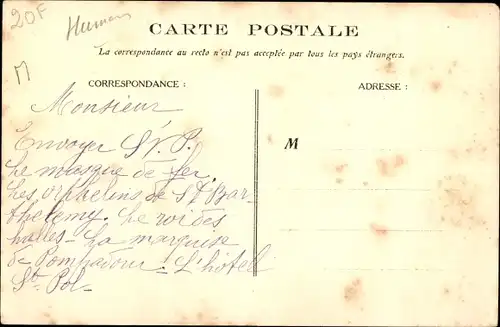 20F
Human
M
CARTE POSTALE
La correspondance au recto n'est pas acceptée par tous les pays étrangers.
CORRESPONDANCE :
ADRESSE :
M
Monsieur
Envoyer S. V. P.
Le masque de fer.
Les orphelins de St Bar-
thelemy. Le roi des
halles - La marquise
de Pompadour. L'hôtel
St Pol -